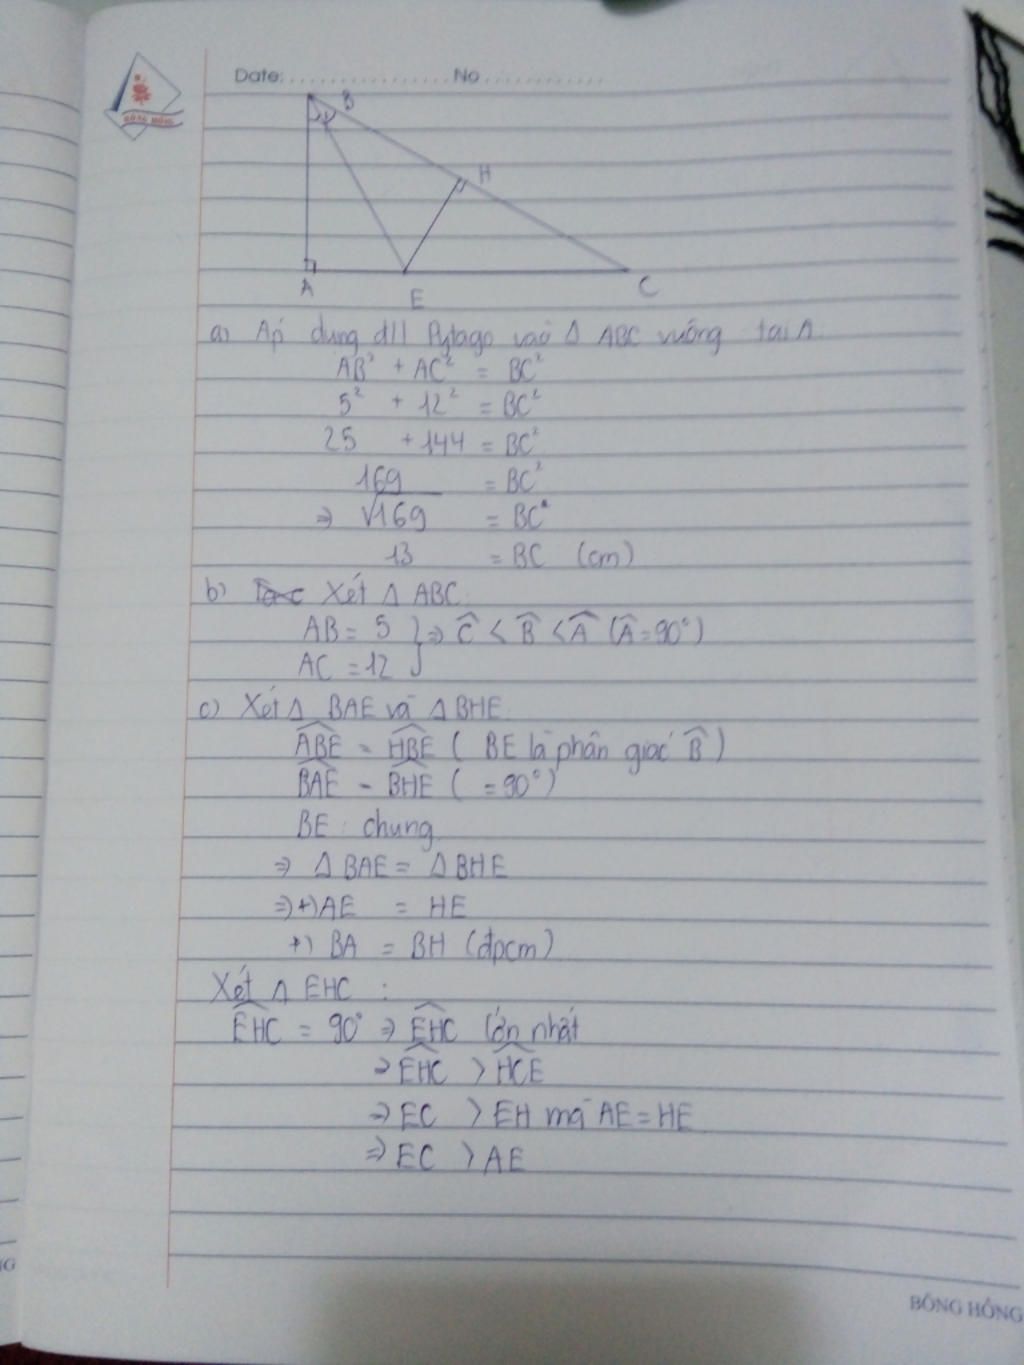 BÔNG HỒNG
Date: ................ No ............
B
H
A
E
C
a) Áp dụng đll Pytago vào Δ ABC vuông tại A.
AB² + AC² = BC²
5² + 12² = BC²
25 + 144 = BC²
169 = BC²
⇒ √169 = BC
13 = BC (cm)
b) Xét Δ ABC:
AB = 5 } ⇒ Ĉ < B̂ < Â (Â = 90°)
AC = 12
c) Xét Δ BAE và Δ BHE
ABE = HBE ( BE là phân giác B̂ )
BAE = BHE ( = 90°)
BE : chung
⇒ Δ BAE = Δ BHE
⇒ +) AE = HE
+) BA = BH (đpcm)
Xét Δ EHC :
EHC = 90° ⇒ EHC lớn nhất
⇒ EHC > HCE
⇒ EC > EH mà AE = HE
⇒ EC > AE
NG
BÔNG HỒNG